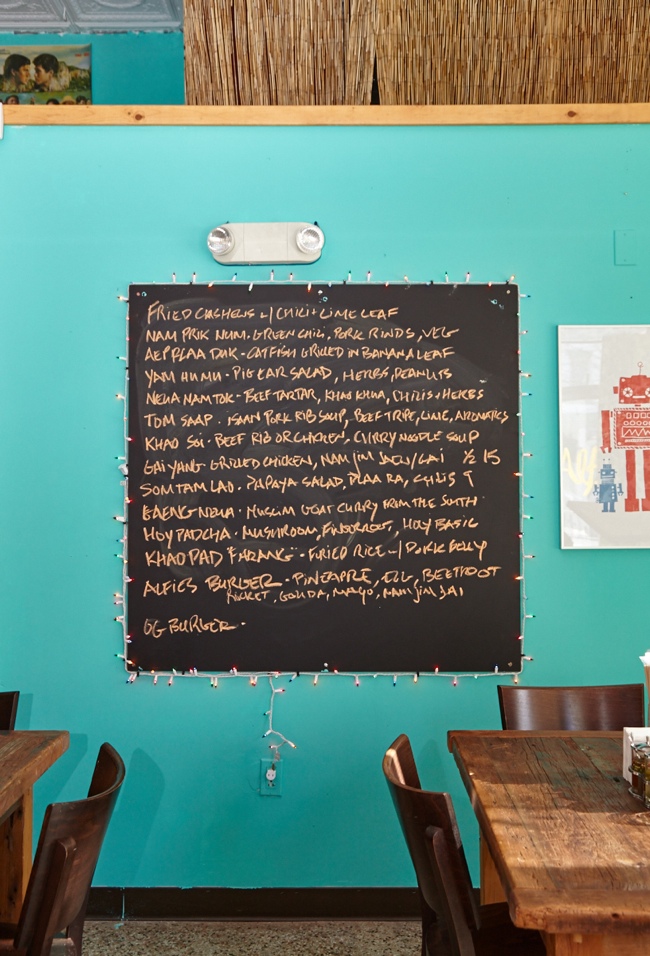 FRIED CASHEWS w/ CHILI + LIME LEAF
NAM PRIK NUM. GREEN CHILI, PORK RINDS, VEG
AEP PLAA DUK - CATFISH GRILLED IN BANANA LEAF
YAM HUMU - PIG EAR SALAD, HERBS, PEANUTS
NEUA NAM TOK - BEEF TARTAR, KHAO KHUA, CHILIS + HERBS
TOM SAAP - ISAAN PORK RIB SOUP, BEEF TRIPE, LIME, AROMATICS
KHAO SOI - BEEF RIB OR CHICKEN, CURRY NOODLE SOUP
GAI YANG - GRILLED CHICKEN, NAM JIM JAEW/GAI ½ 15
SOM TAM LAO - PAPAYA SALAD, PLAA RA, CHILIS 9
GAENG NEUA - MUSLIM GOAT CURRY FROM THE SOUTH
HOY PADCHA - MUSHROOM, FINGERROOT, HOLY BASIC
KHAO PAD FARANG - FRIED RICE w/ PORK BELLY
ALFIES BURGER - PINEAPPLE, EGG, BEETROOT
ROCKET, GOUDA, MAYO, NAM JIM JAI
OG BURGER -